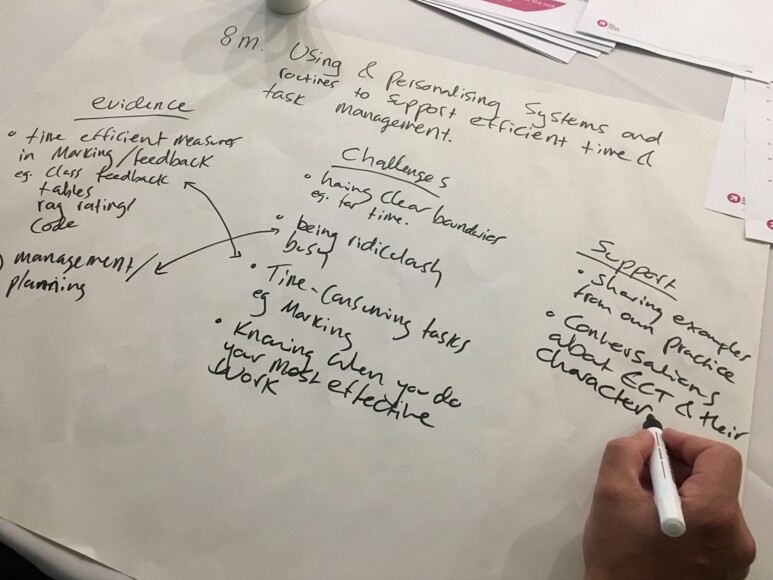 8m. Using & Personalising Systems and
routines to support efficient time &
task management.
evidence
• time efficient measures
in Marking/feedback
eg. class feedback
tables
rag rating/
Code
management/
planning
Challenges
• having clear boundries
eg. for time.
• being ridiculash
busy
• Time-Consuming tasks
eg Marking
• Knowing when you do
your most effective
Work
Support
• Sharing examples
from own practice
• Conversations
about ECT & their
character